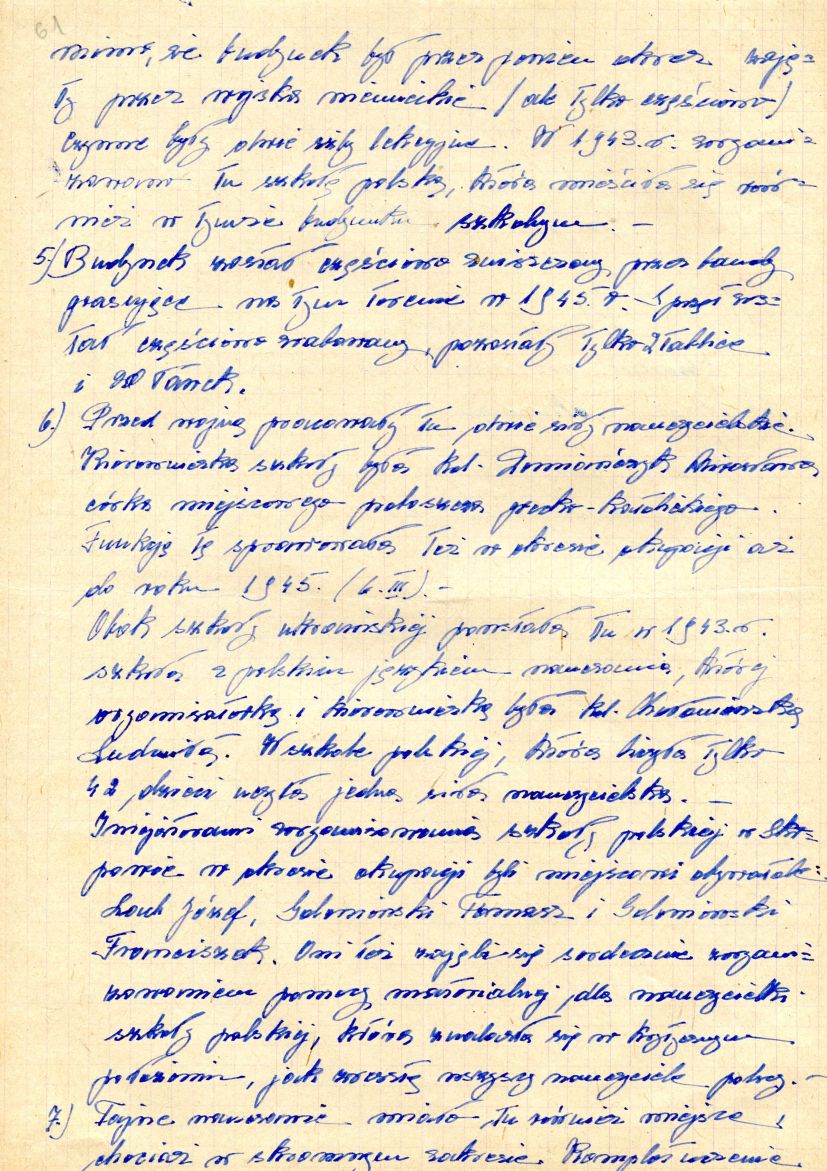 61
mimo, że budynek był przez pewien okres zaję=
ty przez wojska niemieckie (ale tylko częściowo)
czynne były dwie sale lekcyjne. W 1943.r. zorgani=
zowano tu szkołę polską, która mieściła się rów=
nież w tymże budynku szkolnym. –
5.) Budynek został częściowo zniszczony przez bandy
grasujące na tym terenie w 1945.r. Sprzęt zos=
tał częściowo zrabowany, pozostały tylko 2 tablice
i 20 ławek.
6.) Przed wojną pracowały tu dwie siły nauczycielskie.
Kierowniczką szkoły była kol.
córka miejscowego proboszcza grecko-katolickiego.
Funkcję tę sprawowała też w okresie okupacji aż
do roku 1945. (6.III). –
Obok szkoły ukraińskiej powstała tu w 1943.r.
szkoła z polskim językiem nauczania, której
organizatorką i kierowniczką była kol.
Ludmiła. W szkole polskiej, która liczyła tylko
42 dzieci uczyła jedna siła nauczycielska. –
Inicjatorami zorganizowania szkoły polskiej w
w okresie okupacji byli miejscowi obywatele:
Józef, Tomasz i
Franciszek. Oni też zajęli się serdecznie zorgani=
zowaniem pomocy materialnej dla nauczycielki
szkoły polskiej, która znalazła się w krytycznym
położeniu, jak zresztą wszyscy nauczyciele polscy. –
7.) Tajne nauczanie miało tu również miejsce,
chociaż w skromnym zakresie.